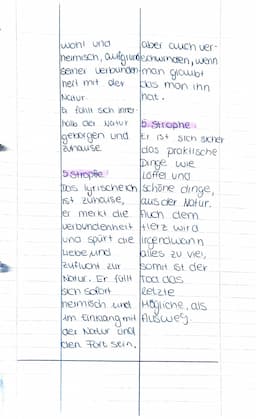 wohl und
heimisch, aufgrund
seiner Verbunden-
heit mit der
Natur.
Er fühlt sich inner-
halb der Natur
geborgen und
zuhause.
5. Strophe
Das lyrische Ich
ist zuhause,
er merkt die
Verbundenheit
und spürt die
Liebe und
Zuflucht zur
Natur. Er fühlt
sich sofort
heimisch und
im Einklang mit
der Natur und
den Fort sein.
aber auch ver-
schwinden, wenn
man glaubt
das man ihn
hat.
5. Strophe
Er ist sich sicher
das praktische
Dinge wie
Löffel und
schöne dinge,
aus der Natur.
Auch dem
Herz wird
irgendwann
alles zu viel,
somit ist der
Tod das
letzte
Mögliche, als
Ausweg.